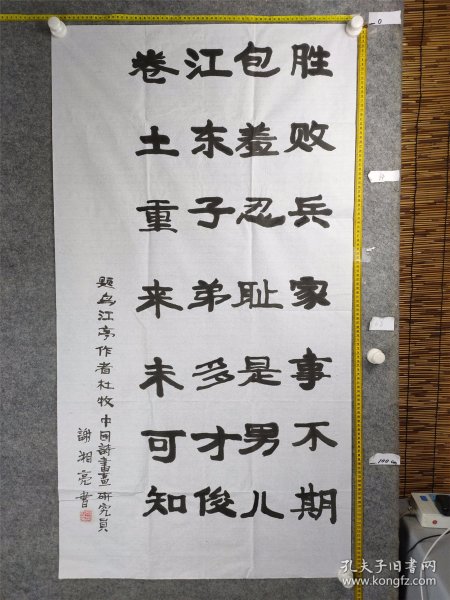 胜败兵家事不期
包羞忍耻是男儿
江东子弟多才俊
卷土重来未可知
题乌江亭作者杜牧 中国诗书画研究员
謝湘亮書
孔夫子旧书网
www.kongfz.com